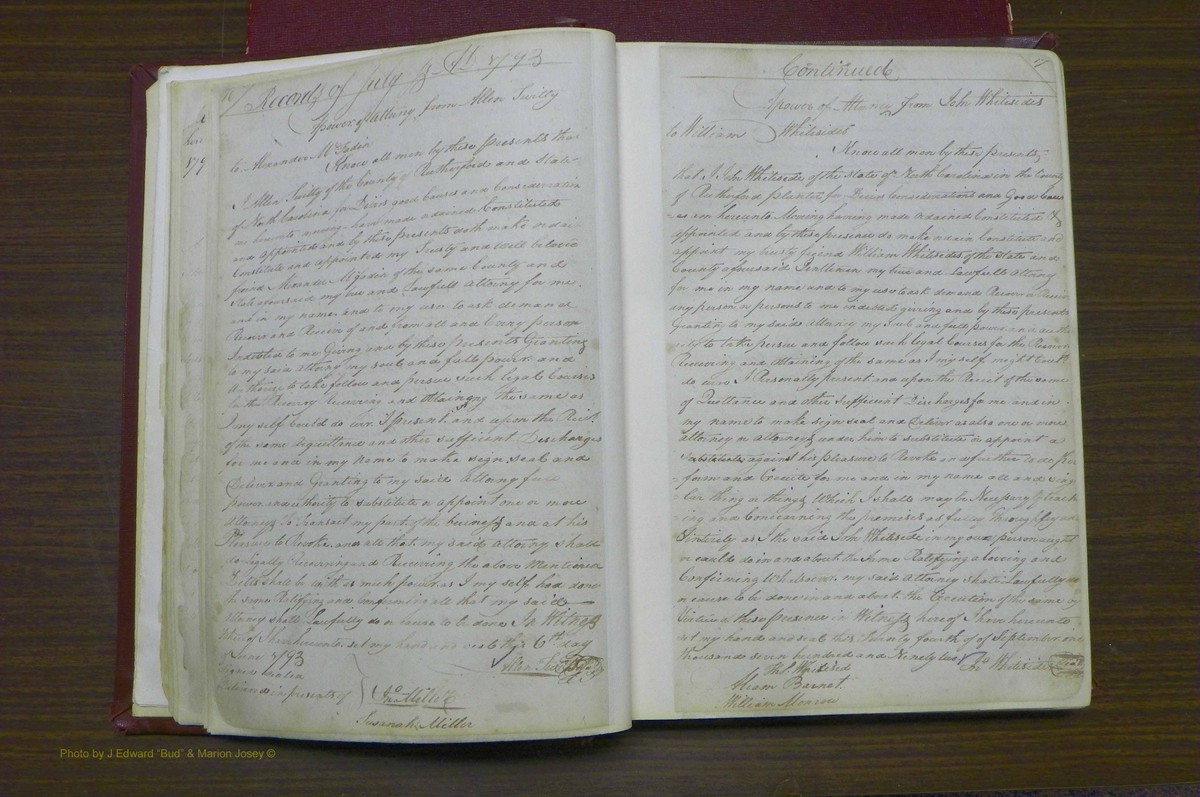 Records of July 4th 1793
power of Attorny from Allen Twitty
to Alexander McFadin
Know all men by these presents that
I Allen Twitty of the County of Rutherford and State
of North Carolina for Divirs good Causes and Consideration
me hereunto moving have made ordained Constituted
and appointed and by these presents doth make ordain
Constitute and appointed my Trusty and well beloved
friend Alexander McFadin of the same County and
State aforesaid my true and Lawfull attorny for me
and in my name and to my use to ask demand
Recover and Receive of and from all and Every person
Indebted to me Giving and by these presents Granting
to my said attorny my soul and full power and
Authority to take follow and persue such legal Courses
for the Recovery Receiving and Attaining the same as
I my self Could do wer I present and upon the Rect.
of the same acquittance and other sufficient Discharges
for me and in my name to make sign seal and
Deliver and Granting to my said Attorny full
power and authority to substitute or appoint one or more
attorneys to Transact my part of the business and at his
Pleasure to Revoke and all that my said Attorny shall
do Legally Recovering and Receiving the above Mentioned
Debts shall be with as much power as I my self had done
the same Ratifying and Confirming all that my said
attorny shall Lawfully do or cause to be done In Witness
whereof I have hereunto set my hand and seal this 6th day
of June 1793
Signed sealed
Allen Twitty Seal
Deliverd in presents of
Jno Miller
Susanah Miller
Continued
7
power of Attorney from John Whitesides
to William Whitesides
Know all men by these presents
that I John Whiteside of the State of North Carolina in the County
of Rutherford planter for Divirs Considerations and Good Caus
-es me hereunto Moving having made Ordained Constituted &
appointed and by these presents do make ordain Constitute and
appoint my trusty friend William Whitesides of the State and
County aforesaid Gentlemen my true and Lawfull Attorny
for me in my name and to my use to ask demand Recover & Receive
any person or persons to me indebted giving and by these presents
Granting to my said Attorney my Soul and full power and
to take persue and follow such legal Courses for the Recovery
Receiving and attaining of the same as I my self might
do were I Personally present and upon the Receit of the same
of Quittance and other Sufficient Discharges for me and in
my name to make sign seal and Deliver as also one or more
attorney or attorneys under him to substitute or appoint a
substitute against his pleasure to Revoke and further to do per
form and Execute for me and in my name all and sing
ular thing or things Which I shall or may be Necessary touch
ing and Concerning the premises as fully Throughly and
Intirely as I the said John Whiteside in my own person ought
or could do in and about the same Ratifying allowing and
Confirming Whatsoever my said Attorney shall Lawfully do
or cause to be done in and about the Execution of the same by
Vertue of these presence in Witness here of I have hereunto
set my hand and seal this Twenty fourth of of September one
thousand seven hundred and Ninety two Jno Whiteside Seal
Thos Whiteside
Abram Barnet
William Monroe
Photo by J Edward "Bud" & Marion Josey ©